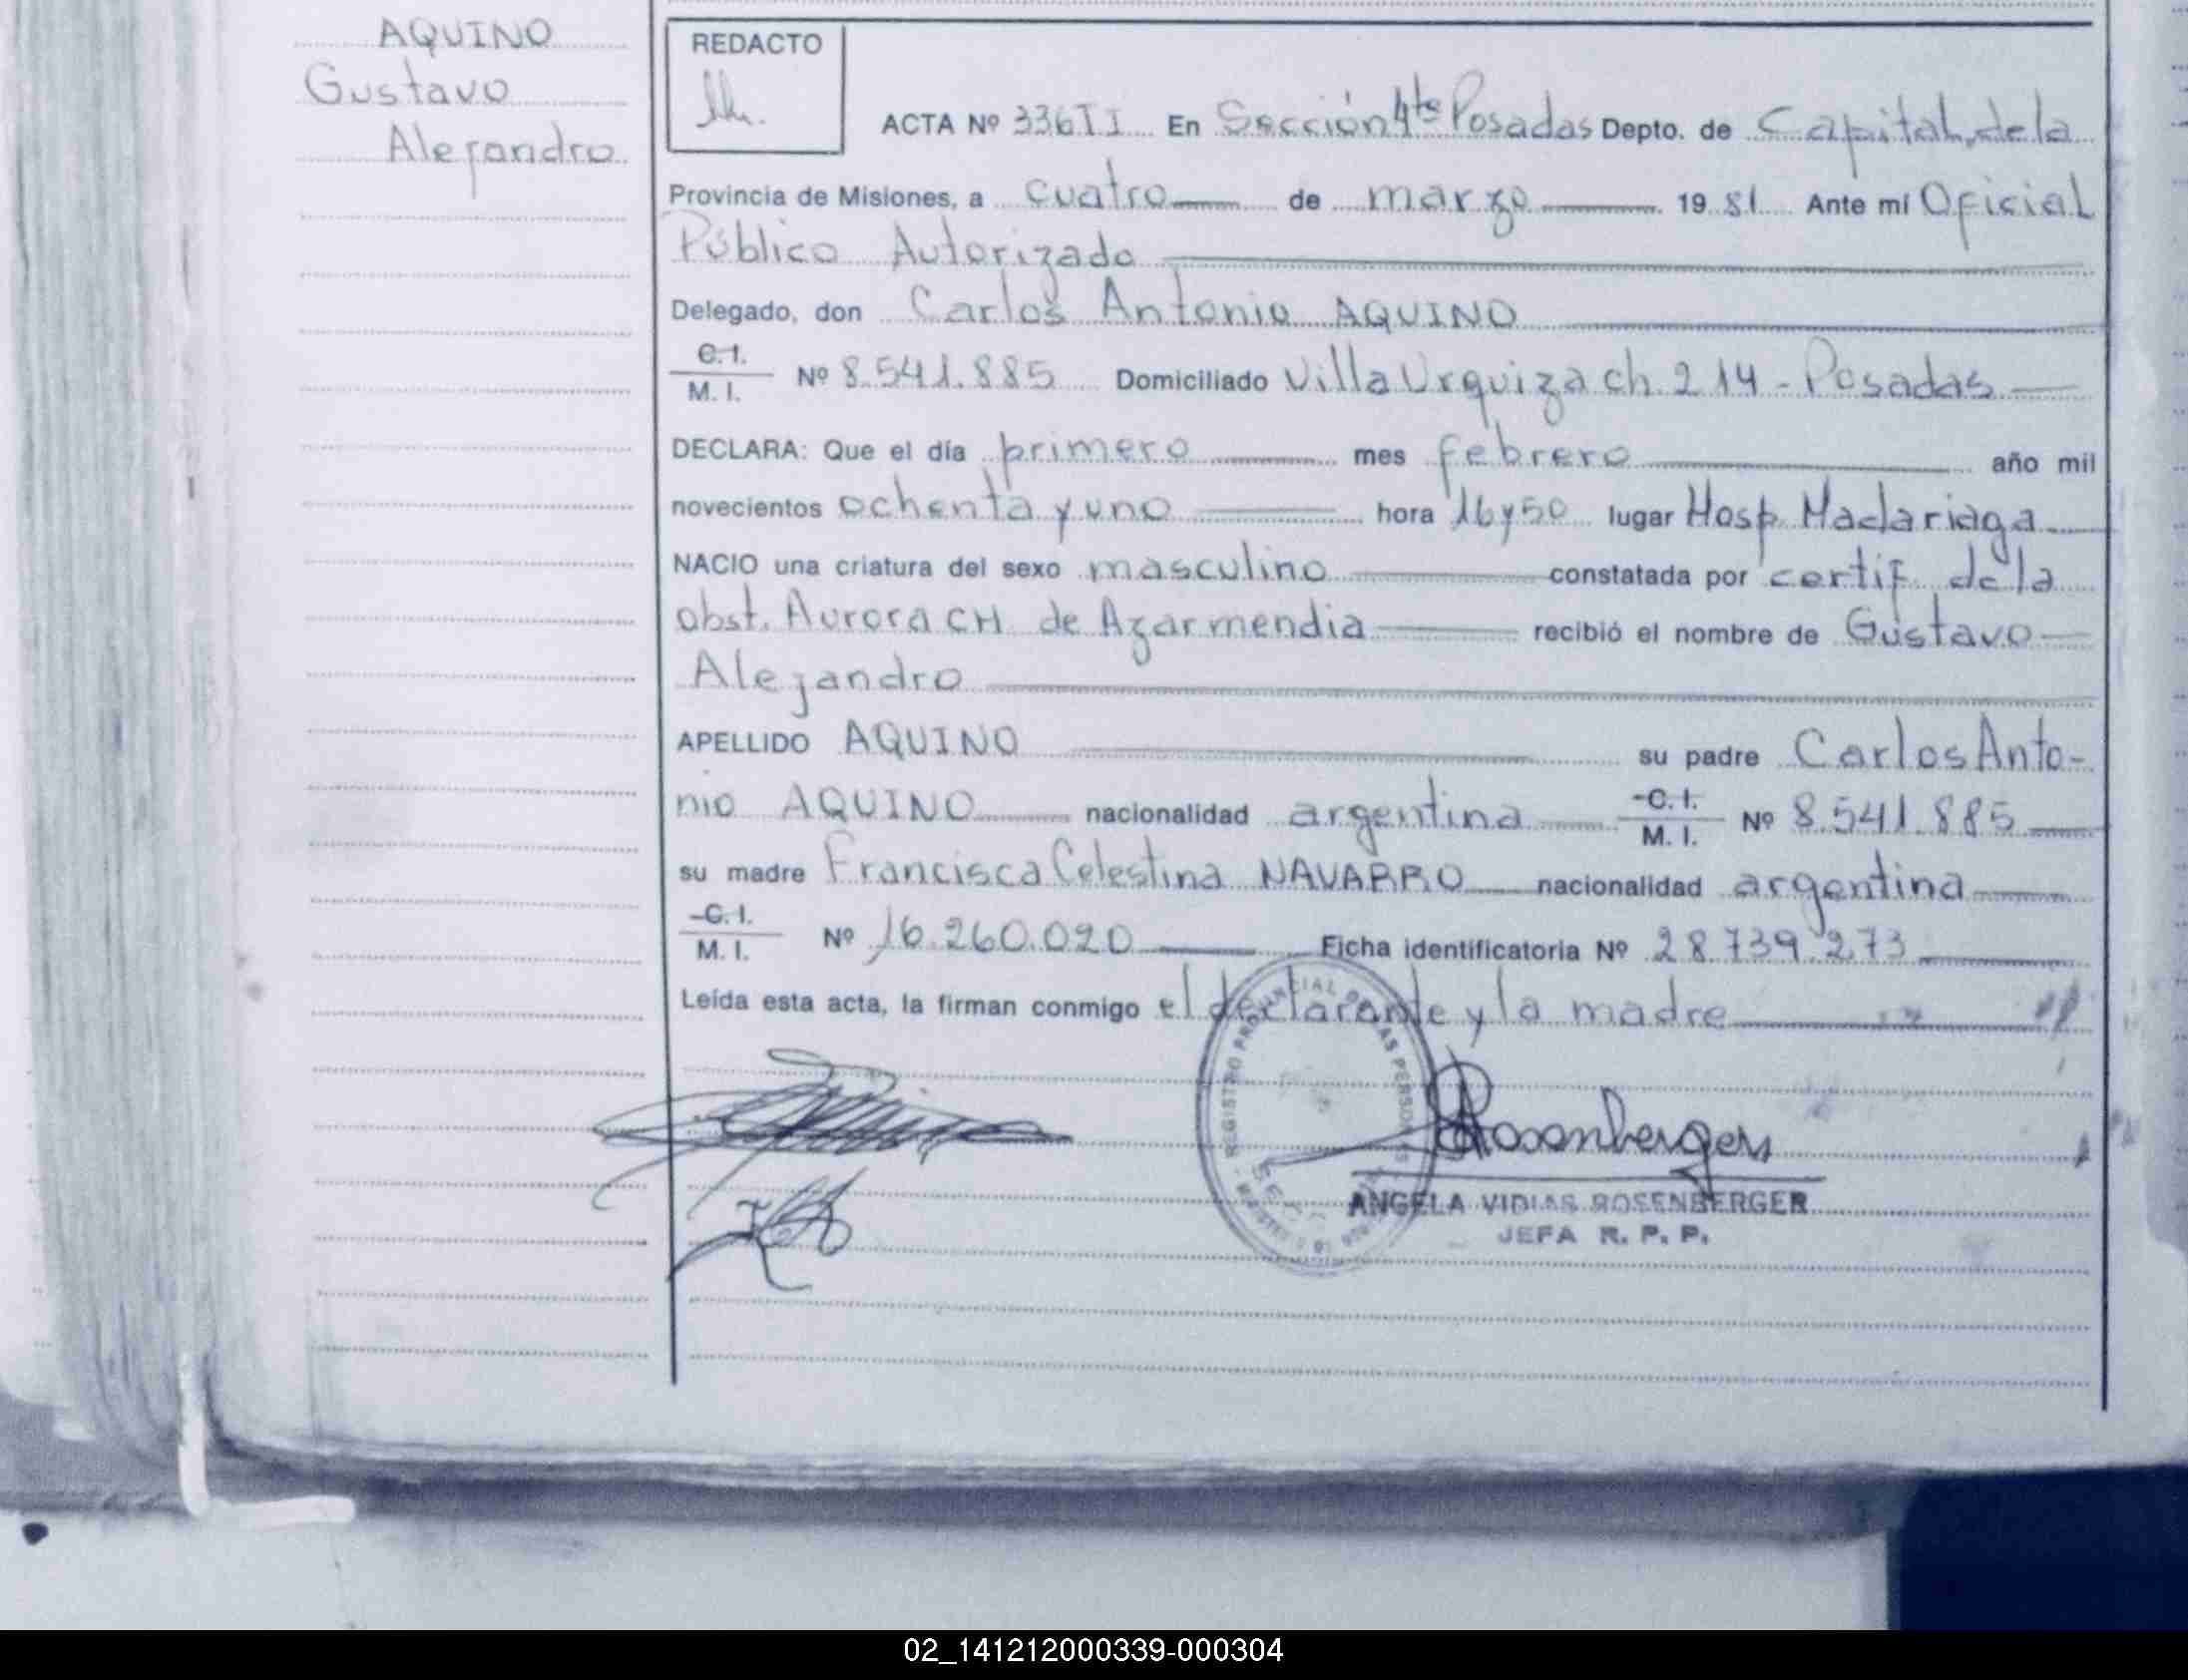 AQUINO
Gustavo
Alejandro
REDACTO
ACTA Nº 336 II En Sección 4ta Posadas Depto. de Capital, de la
Provincia de Misiones, a cuatro de marzo 19 81 Ante mí Oficial
Público Autorizado
Delegado, don Carlos Antonio AQUINO
C. I.
M. I. Nº 8.541.885 Domiciliado Villa Urquiza ch. 214 - Posadas
DECLARA: Que el día primero mes febrero año mil
novecientos ochenta y uno hora 16 y 50 lugar Hosp. Madariaga
NACIO una criatura del sexo masculino constatada por certif. de la
obst. Aurora CH de Azarmendia recibió el nombre de Gustavo
Alejandro
APELLIDO AQUINO su padre Carlos Anto-
nio AQUINO nacionalidad argentina C. I. M. I. Nº 8.541.885
su madre Francisca Celestina NAVARRO nacionalidad argentina
C. I.
M. I. Nº 16.260.020 Ficha identificatoria Nº 28.739.273
Leída esta acta, la firman conmigo el declarante y la madre
REGISTRO PROVINCIAL DE LAS PERSONAS
Rosenberger
ANGELA VIDIAS ROSENBERGER
JEFA R. P. P.
02_141212000339-000304